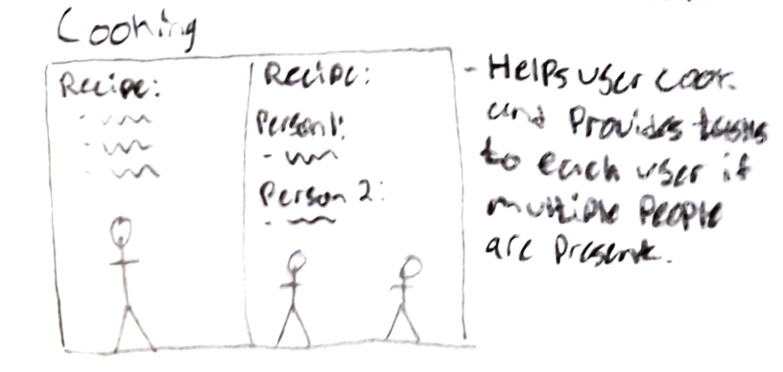 Cooking
Recipe:
Recipe:
Person 1:
-
Person 2:
-
- Helps user cook.
and Provides tasks
to each user if
multiple People
are Present.